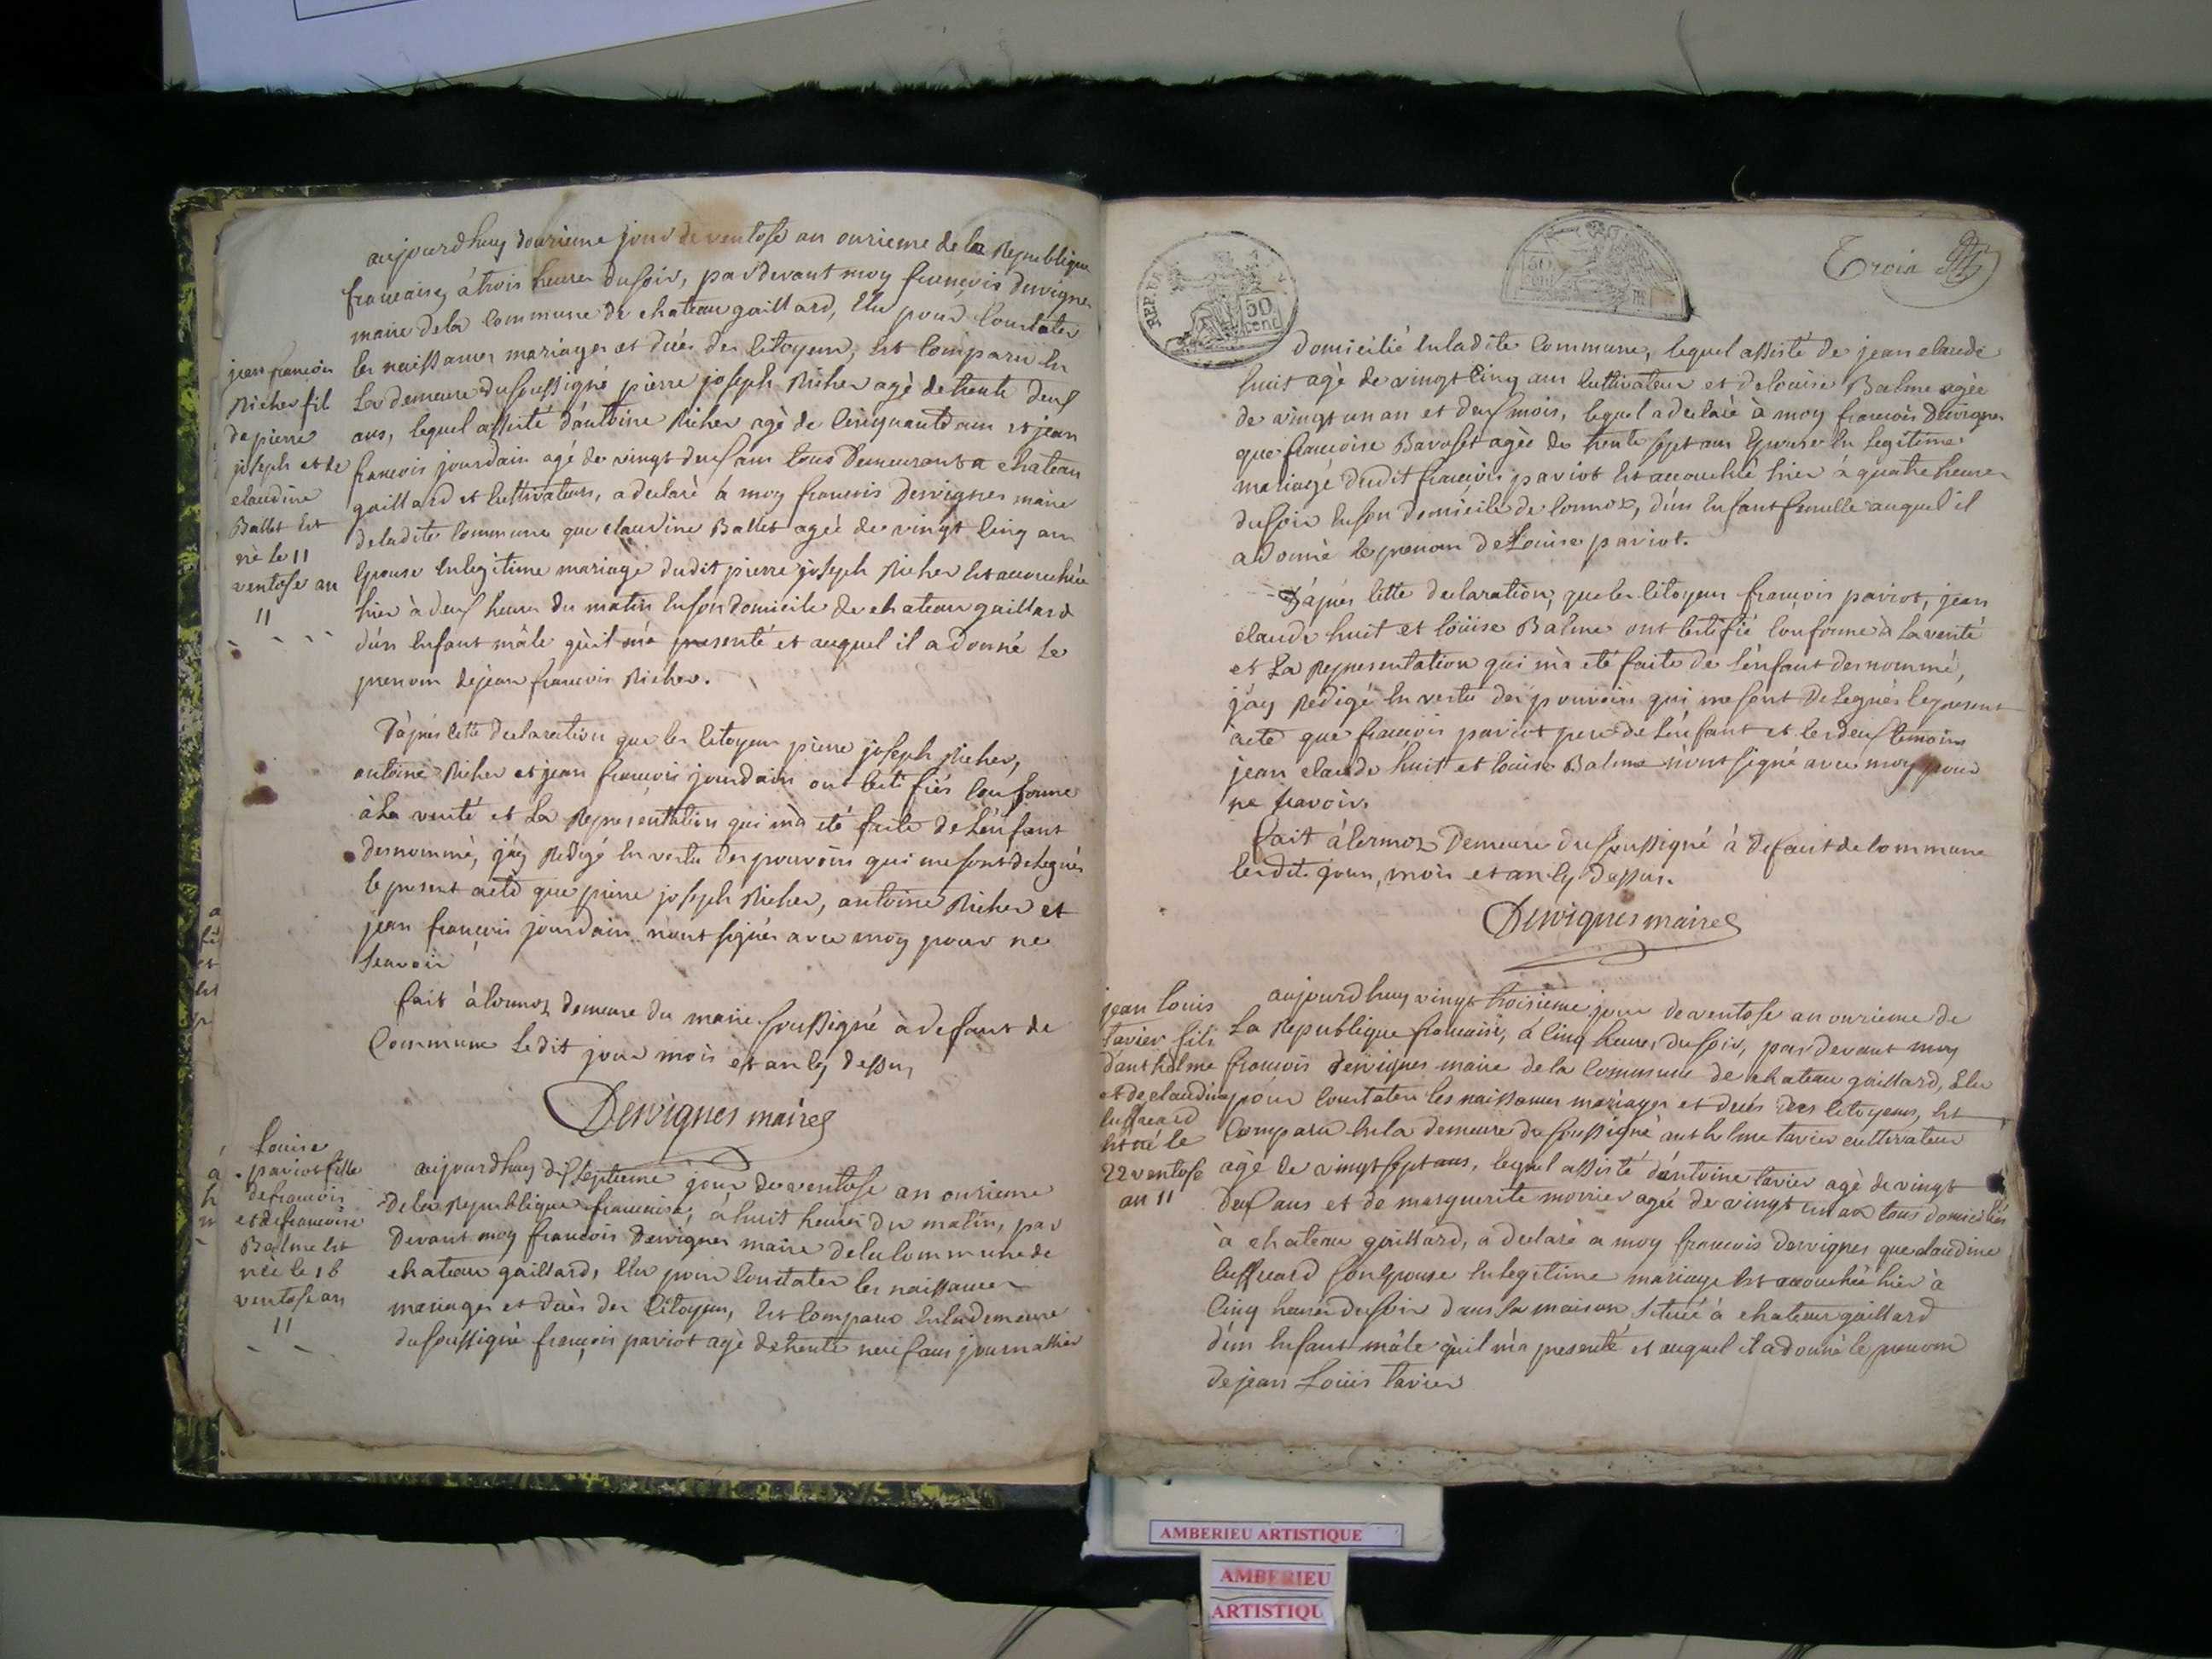 aujourdhuy douzieme jour de ventose an onzieme de la Republique
francaise, à trois heures du soir, par devant moy francois dervignes
maire de la Commune de chateau gaillard, Elu pour Constater
les naissances mariages et dués des Citoyens, Est Comparu En
La demeure du soussigné pierre joseph Richer agè de trente deux
ans, lequel assisté d'antoine Richer agè de Cinquante ans et jean
francois jourdain agé de vingt deux ans tous Demeurant a chateau
gaillard et Cultivateurs, a declarè à moy francois Dervignes maire
de ladite Commune que claudine Ballet agèe de vingt Cinq ans
Epouse En legitime mariage dudit pierre joseph Richer Est accouchèe
hier à deux heures du matin En son domicile de chateau gaillard
d'un Enfant mâle qu'il m'a presenté et auquel il a donné Le
prenom de jean francois Richer.
jean francois
Richer fil
de pierre
joseph et de
claudine
Ballet Est
nè le 11
ventose an
11
D'après Cette declaration que les Citoyens pierre joseph Richer,
antoine Richer et jean francois jourdain ont Certifiés Conforme
à La verité et La Representation qui m'à eté faite de L'énfant
denommè, j'ay Redigé En vertu des pouvoirs qui me sont deLegués
le present acte que pierre joseph Richer, antoine Richer et
jean francois jourdain n'ont signés avec moy pour ne
sçavoir
fait à Cormoz demeure du maire soussigné à defaut de
Commune Le dit jour mois et an Cy dessus
Dervignes maire
Louise
pariot fille
de francois
et de francoise
Balme Est
née le 16
ventose an
11
aujourdhuy dixseptieme jour de ventose an onzieme
de la Republique francaise, à huit heures du matin, par
Devant moy francois Dervignes maire de la Commune de
chateau gaillard, Elu pour Constater les naissances
mariages et dués des Citoyens, Est Comparu En la demeure
du soussigné françois pariot agè de trente neuf ans journallier
REP.
50
cent
50
Troix
domicilié En ladite Commune, lequel assisté de jean claude
huit agè de vingt Cinq ans Cultivateur et de louise Balme agée
de vingt un an et deux mois, lequel a declarè à moy francois Dervignes
que francoise agèe de trente sept ans Epouse En legitime
mariage dudit francois pariot Est accouchèe hier à quatre heures
du soir En son domicile de Cormoz, d'un Enfant femelle auquel il
a donnè le prenom de Louise pariot.
D'àprès Cette declaration, que les Citoyens francois pariot, jean
claude huit et loüise Balme ont Certifié Conforme à La verité
et La Representation qui m'à eté faite de L'énfant denommé,
j'ay Redigé En vertu des pouvoirs qui me sont deLegués le present
acte que francois pariot pere de L'énfant et les deux temoins
jean claude huit et louise Balme n'ont signé avec moy pour
ne scavoir.
fait à Cormoz Demeure du soussigné à defaut de Commune
Les dits jour, mois et an Cy dessus.
Dervignes maire
jean louis
tavier fils
d'anthelme
et de claudine
Est né le
22 ventose
an 11
aujourdhuy vingt troisieme jour de ventose an onzieme de
La Republique francaise, à Cinq heures du soir, par devant moy
francois Dervignes maire de la Commune de chateau gaillard, Elu
pour Constater les naissances mariages et dués des Citoyens, Est
Comparu En la demeure du soussigné anthelme tavier cultivateur
àgé de vingt sept ans, lequel assisté d'antoine tavier agè de vingt
deux ans et de marguerite morrier agée de vingt un an tous domiciliés
à chateau gaillard, a declarè a moy francois Dervignes que claudine
son Epouse En legitime mariage Est accouchèe hier à
Cinq heures du soir dans sa maison située à chateau gaillard
d'un Enfant mâle qu'il m'a presenté et auquel il a donnè le prenom
de jean Louis tavier
AMBERIEU ARTISTIQUE
AMBERIEU
ARTISTIQU